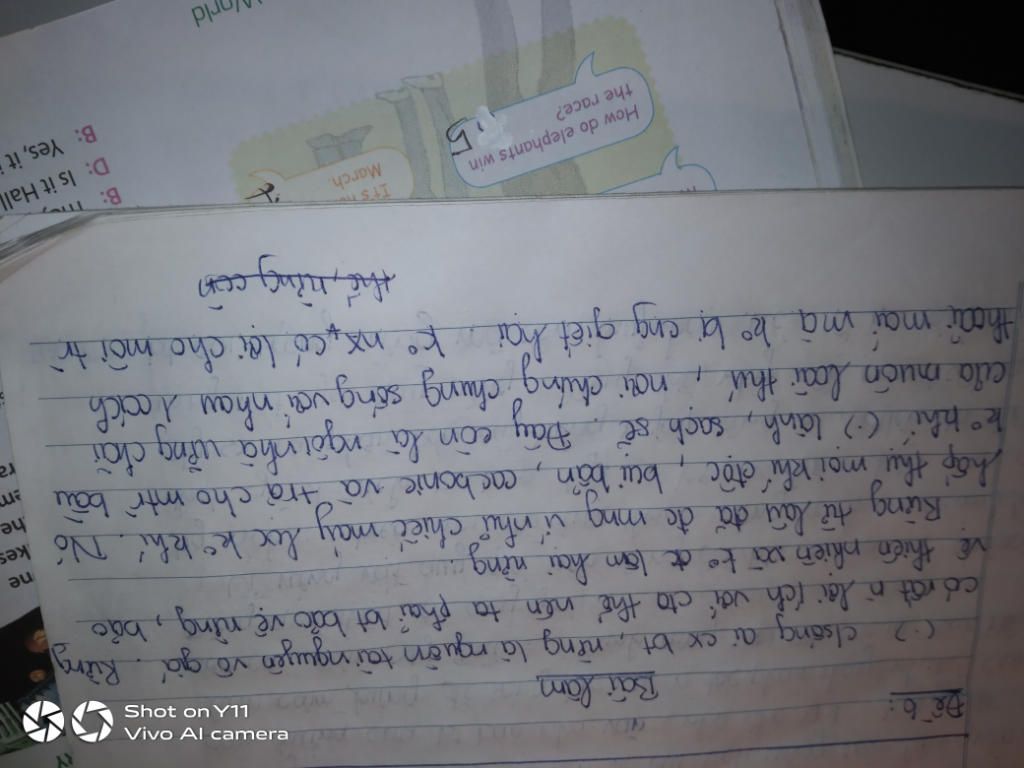 Đề 6:
Bài làm
(.) csống ai cx bt, rừng là nguồn tài nguyên vô giá. Rừng
có rất n lợi ích với cta thế nên ta phải bt bảo vệ rừng, bảo
vệ thiên nhiên và ko đc làm hại rừng.
Rừng từ lâu đã đc mng ví như chiếc máy lọc ko khí. Nó
hấp thụ mọi khí độc, bụi bẩn, cacbonic và trả cho mtr bầu
ko khí (.) lành, sạch sẽ. Đây còn là ngôi nhà vững chãi
của muôn loài thú, nơi chúng chung sống với nhau 1 cách
thoải mái mà ko bị cng giết hại. ko nx, có lợi cho môi tr
thế, rừng còn
How do elephants win
the race?
5
It's
March
World
B:
D: Is it Hall
B: Yes, it i
Shot on Y11
Vivo AI camera